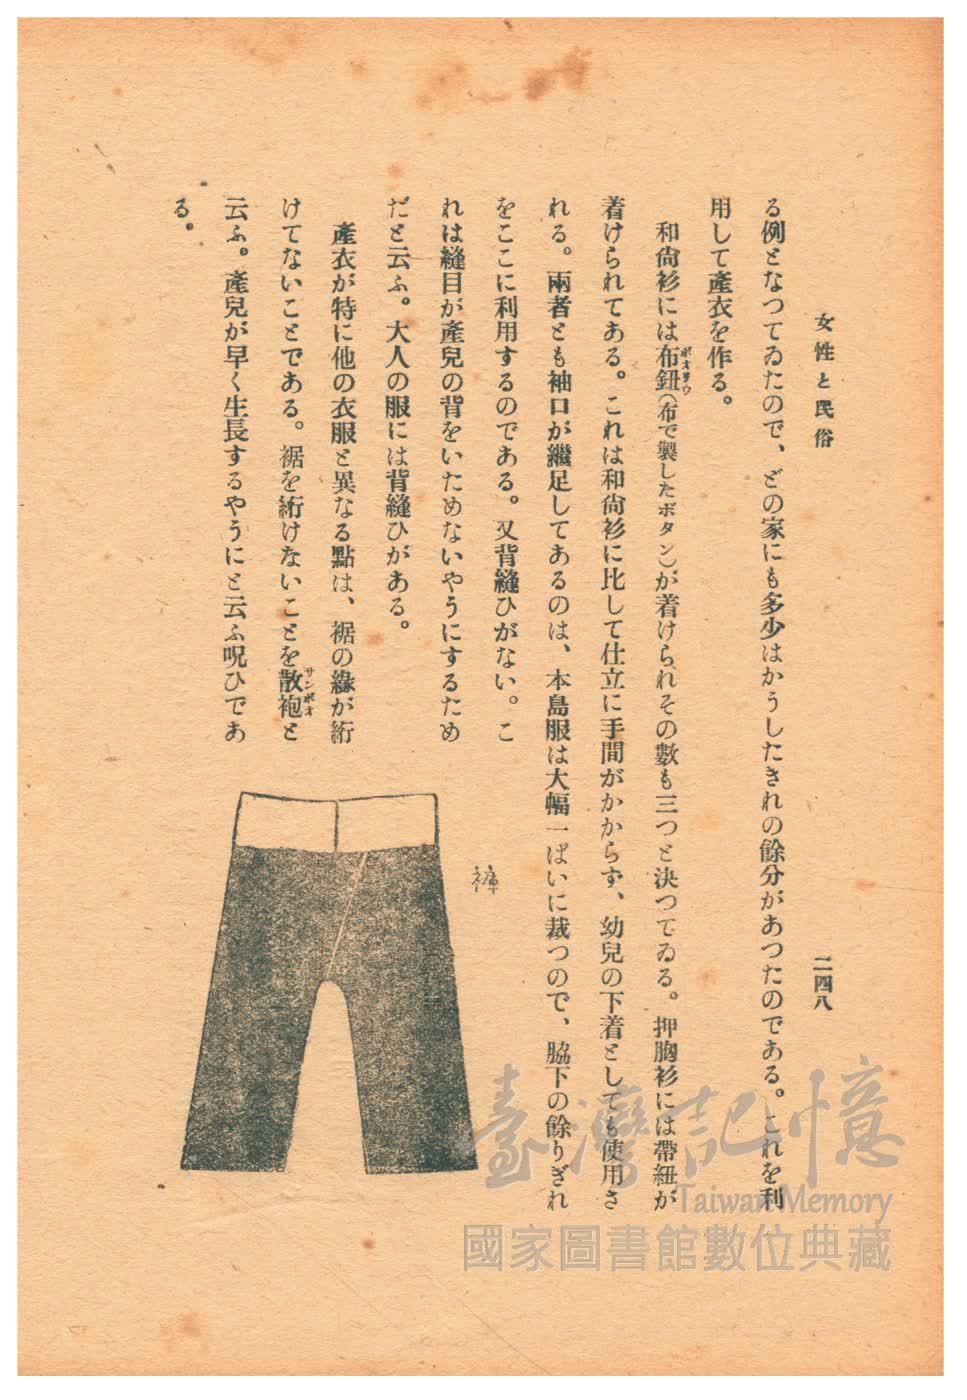 女性と民俗
二四八
る例となつてゐたので、どの家にも多少はかうしたきれの餘分があつたのである。これを利
用して產衣を作る。
和尙衫には布鈕(布で製したボタン)が着けられその數も三つと決つてゐる。押胸衫には帶紐が
着けられてある。これは和尙衫に比して仕立に手間がかからず、幼兒の下着としても使用さ
れる。兩者とも袖口が繼足してあるのは、本島服は大幅一ぱいに裁つので、脇下の餘りぎれ
をここに利用するのである。又背縫ひがない。こ
れは縫目が產兒の背をいためないやうにするため
だと云ふ。大人の服には背縫ひがある。
產衣が特に他の衣服と異なる點は、裾の緣が絎
けてないことである。裾を絎けないことを散袍と
サンポオ
云ふ。產兒が早く生長するやうにと云ふ呪ひであ
る。
褲
臺灣記憶
Taiwan Memory
國家圖書館數位典藏